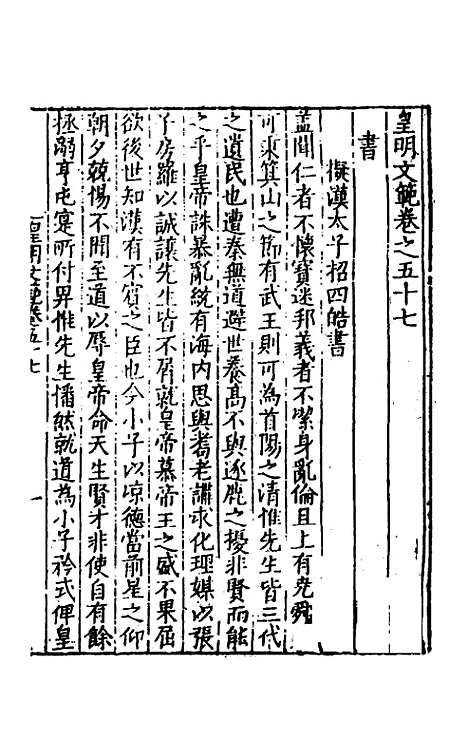 皇明文範卷之五十七
書
擬漢太子招四皓書
蓋聞仁者不懷寶迷邦義者不潔身亂倫且上有堯舜
可秉箕山之節有武王則可為首陽之清惟先生皆三代
之遺民也遭秦無道避世養高不與逐鹿之擾非賢而能
之乎皇帝誅暴亂統有海内思與耆老講求化理媒以張
子房羅以誠讓先生皆不屑就皇帝慕帝王之盛不果屈
欲後世知漢有不賓之臣也今小子以凉德當前星之仰
朝夕兢惕不聞至道以辱皇帝命天生賢才非使自有餘
拯溺亨屯寔所付畀惟先生憣然就道為小子矜式俾皇
皇明文範卷五十七
一